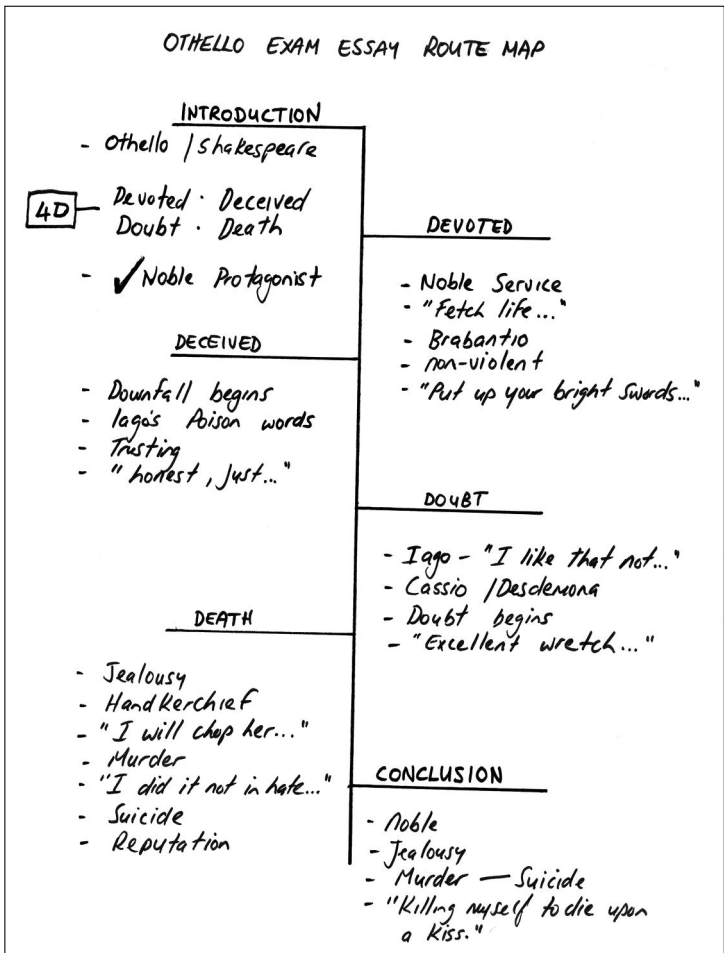 OTHELLO EXAM ESSAY ROUTE MAP
INTRODUCTION
- Othello / Shakespeare
4D
Devoted · Deceived
Doubt · Death
- ✓ Noble Protagonist
DEVOTED
- Noble Service
- "Fetch life..."
- Brabantio
- non-violent
- "Put up your bright Swords..."
DECEIVED
- Downfall begins
- Iago's Poison words
- Trusting
- "honest, Just..."
DOUBT
- Iago - "I like that not..."
- Cassio / Desdemona
- Doubt begins
- "Excellent wretch..."
DEATH
- Jealousy
- Handkerchief
- "I will chop her..."
- Murder
- "I did it not in hate..."
- Suicide
- Reputation
CONCLUSION
- Noble
- Jealousy
- Murder — Suicide
- "Killing myself to die upon
a Kiss."